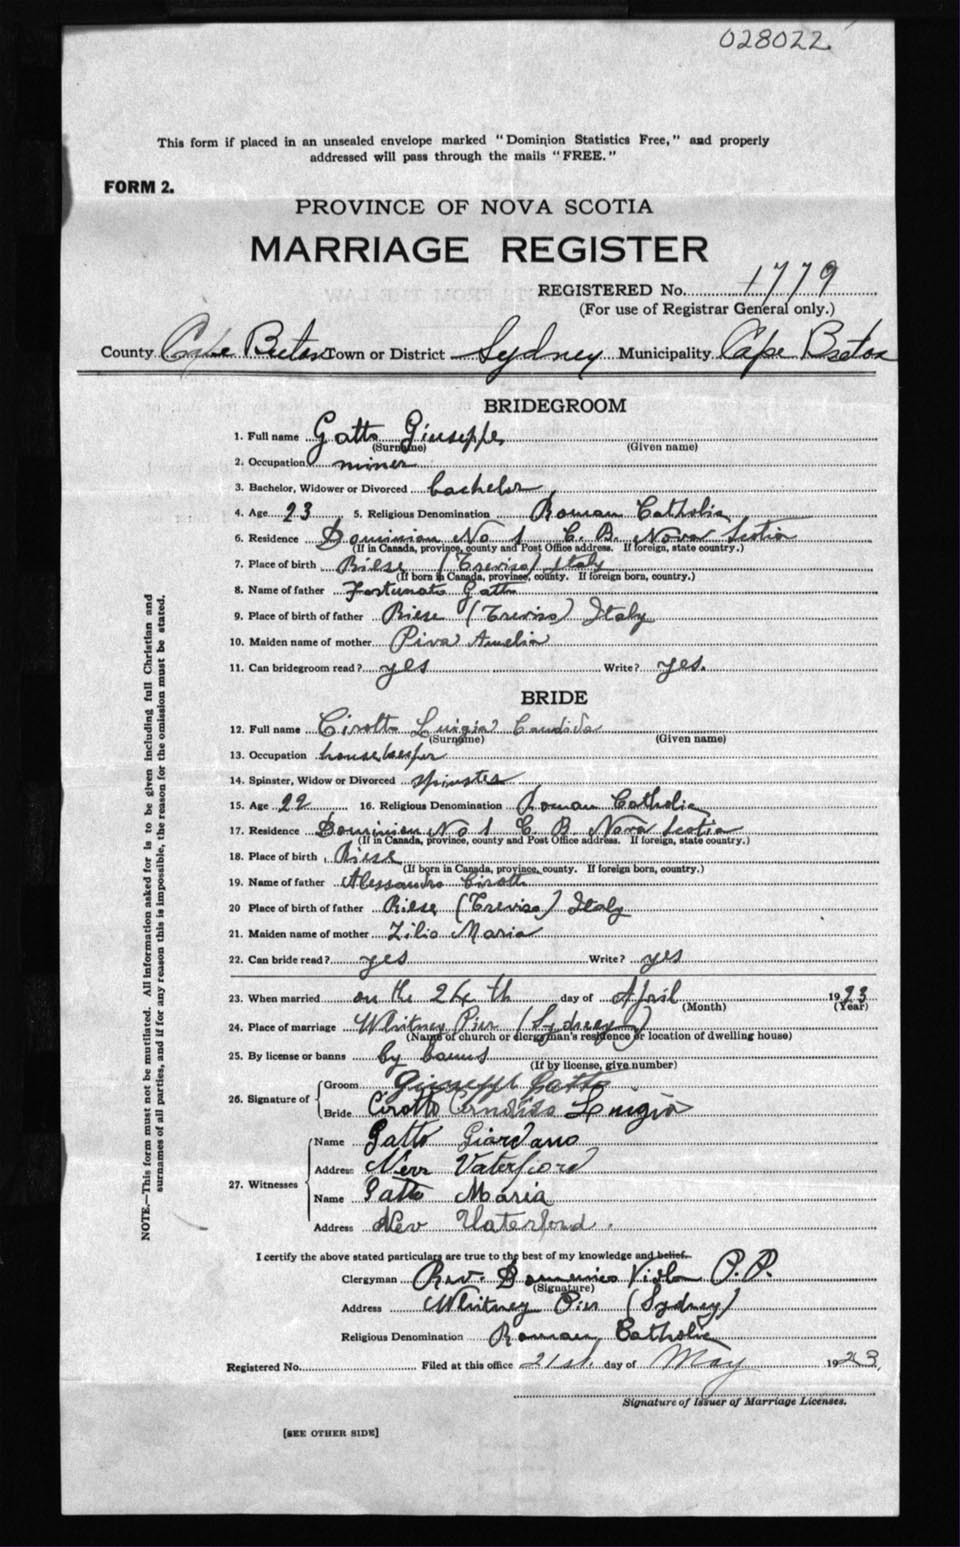 028022
This form if placed in an unsealed envelope marked "Dominion Statistics Free," and properly
addressed will pass through the mails "FREE."
FORM 2.
PROVINCE OF NOVA SCOTIA
MARRIAGE REGISTER
REGISTERED No. 1779
(For use of Registrar General only.)
County Cape Breton Town or District Sydney Municipality Cape Breton
BRIDEGROOM
1. Full name Gatto Giuseppe
(Surname) (Given name)
2. Occupation miner
3. Bachelor, Widower or Divorced bachelor
4. Age 23 5. Religious Denomination Roman Catholic
6. Residence Dominion No 1 C. B. Nova Scotia
(If in Canada, province, county and Post Office address. If foreign, state country.)
7. Place of birth Riese (Treviso) Italy
(If born in Canada, province, county. If foreign born, country.)
8. Name of father Fortunato Gatto
9. Place of birth of father Riese (Treviso) Italy
10. Maiden name of mother Piva Amelia
11. Can bridegroom read? yes Write? yes.
BRIDE
12. Full name Cirotto Luigia Candida
(Surname) (Given name)
13. Occupation housekeeper
14. Spinster, Widow or Divorced spinster
15. Age 22 16. Religious Denomination Roman Catholic
17. Residence Dominion No 1 C. B. Nova Scotia
(If in Canada, province, county and Post Office address. If foreign, state country.)
18. Place of birth Riese
(If born in Canada, province, county. If foreign born, country.)
19. Name of father Alessandro Cirotto
20 Place of birth of father Riese (Treviso) Italy
21. Maiden name of mother Zilio Maria
22. Can bride read? yes Write? yes
23. When married on the 24th day of April 1923
(Month) (Year)
24. Place of marriage Whitney Pier (Sydney)
(Name of church or clergyman's residence or location of dwelling house)
25. By license or banns by banns
(If by license, give number)
26. Signature of Groom Giuseppe Gatto
Bride Cirotto Candida Luigia
27. Witnesses Name Gatto Giordano
Address New Waterford
Name Gatto Maria
Address New Waterford.
I certify the above stated particulars are true to the best of my knowledge and belief.
Clergyman Rev. Domenico P.P.
(Signature)
Address Whitney Pier (Sydney)
Religious Denomination Roman Catholic
Registered No. Filed at this office 21st. day of May 1923.
Signature of Issuer of Marriage Licenses.
[SEE OTHER SIDE]
NOTE.—This form must not be mutilated. All information asked for is to be given including full Christian and
surnames of all parties, and if for any reason this is impossible, the reason for the omission must be stated.